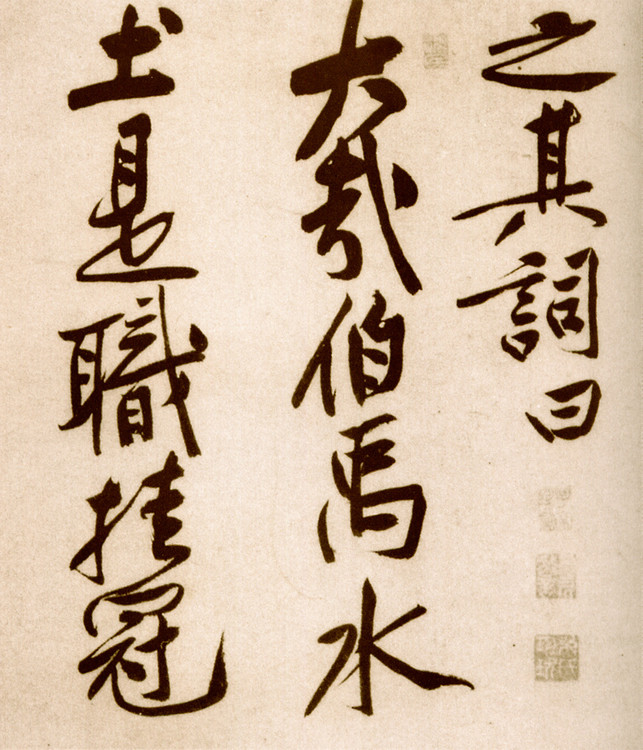 之其詞曰
大哉伯禹水
土是職挂冠